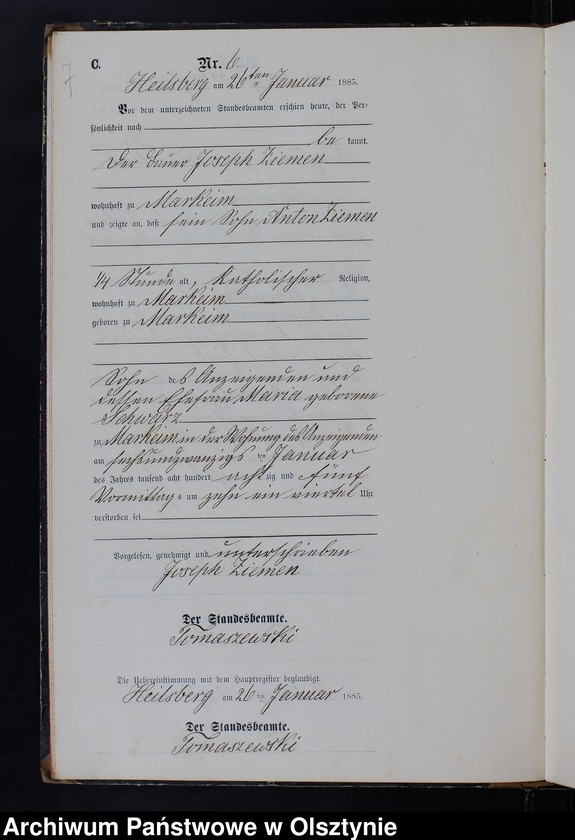 7
C. Nr. 6.
Heilsberg am 26ten Januar 1885.
Vor dem unterzeichneten Standesbeamten erschien heute, der Per-
sönlichkeit nach
be kannt,
der Bauer Joseph Ziemen
wohnhaft zu Markeim
und zeigte an, daß sein Sohn, Anton Ziemen
1/4 Stunde alt, Katholischer Religion,
wohnhaft zu Markeim
geboren zu Markeim
Sohn des Anzeigenden und
dessen Ehefrau Maria geborene
Schwarz
zu Markeim in der Wohnung des Anzeigenden
am sechsundzwanzigsten Januar
des Jahres tausend acht hundert achtzig und fünf
Vormittags um zehn ein viertel Uhr
verstorben sei
Vorgelesen, genehmigt und unterschrieben
Joseph Ziemen
Der Standesbeamte.
Tomaszewski
Die Uebereinstimmung mit dem Hauptregister beglaubigt.
Heilsberg am 26ten Januar 1885.
Der Standesbeamte.
Tomaszewski
Archiwum Państwowe w Olsztynie